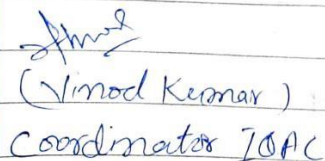 (Vinod Kumar)
Coordinator IQAC